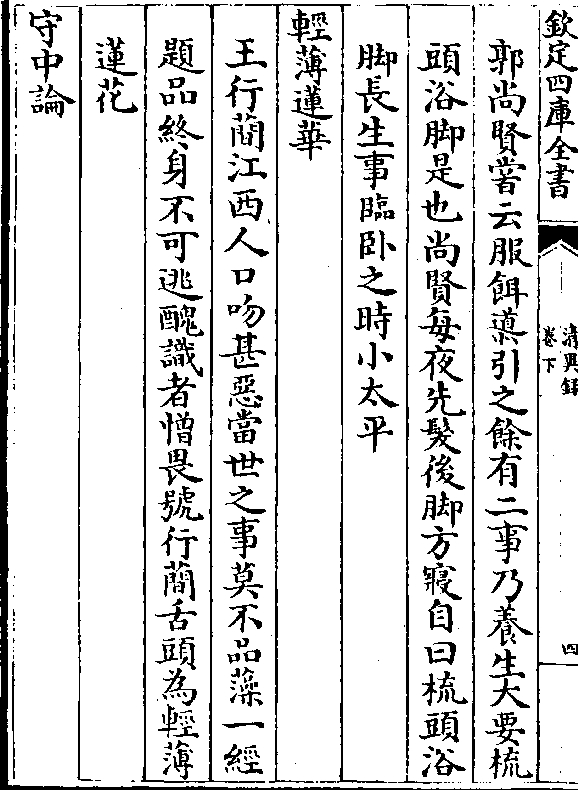 欽定四庫全書
清異録
卷下
四
郭尚賢嘗云服餌導引之餘有二事乃養生大要梳
頭浴脚是也尚賢每夜先髮後脚方寢自曰梳頭浴
脚長生事臨卧之時小太平
輕薄蓮華
王行蕳江西人口吻甚惡當世之事莫不品藻一經
題品終身不可逃醜識者憎畏號行蕳舌頭為輕薄
蓮花
守中論